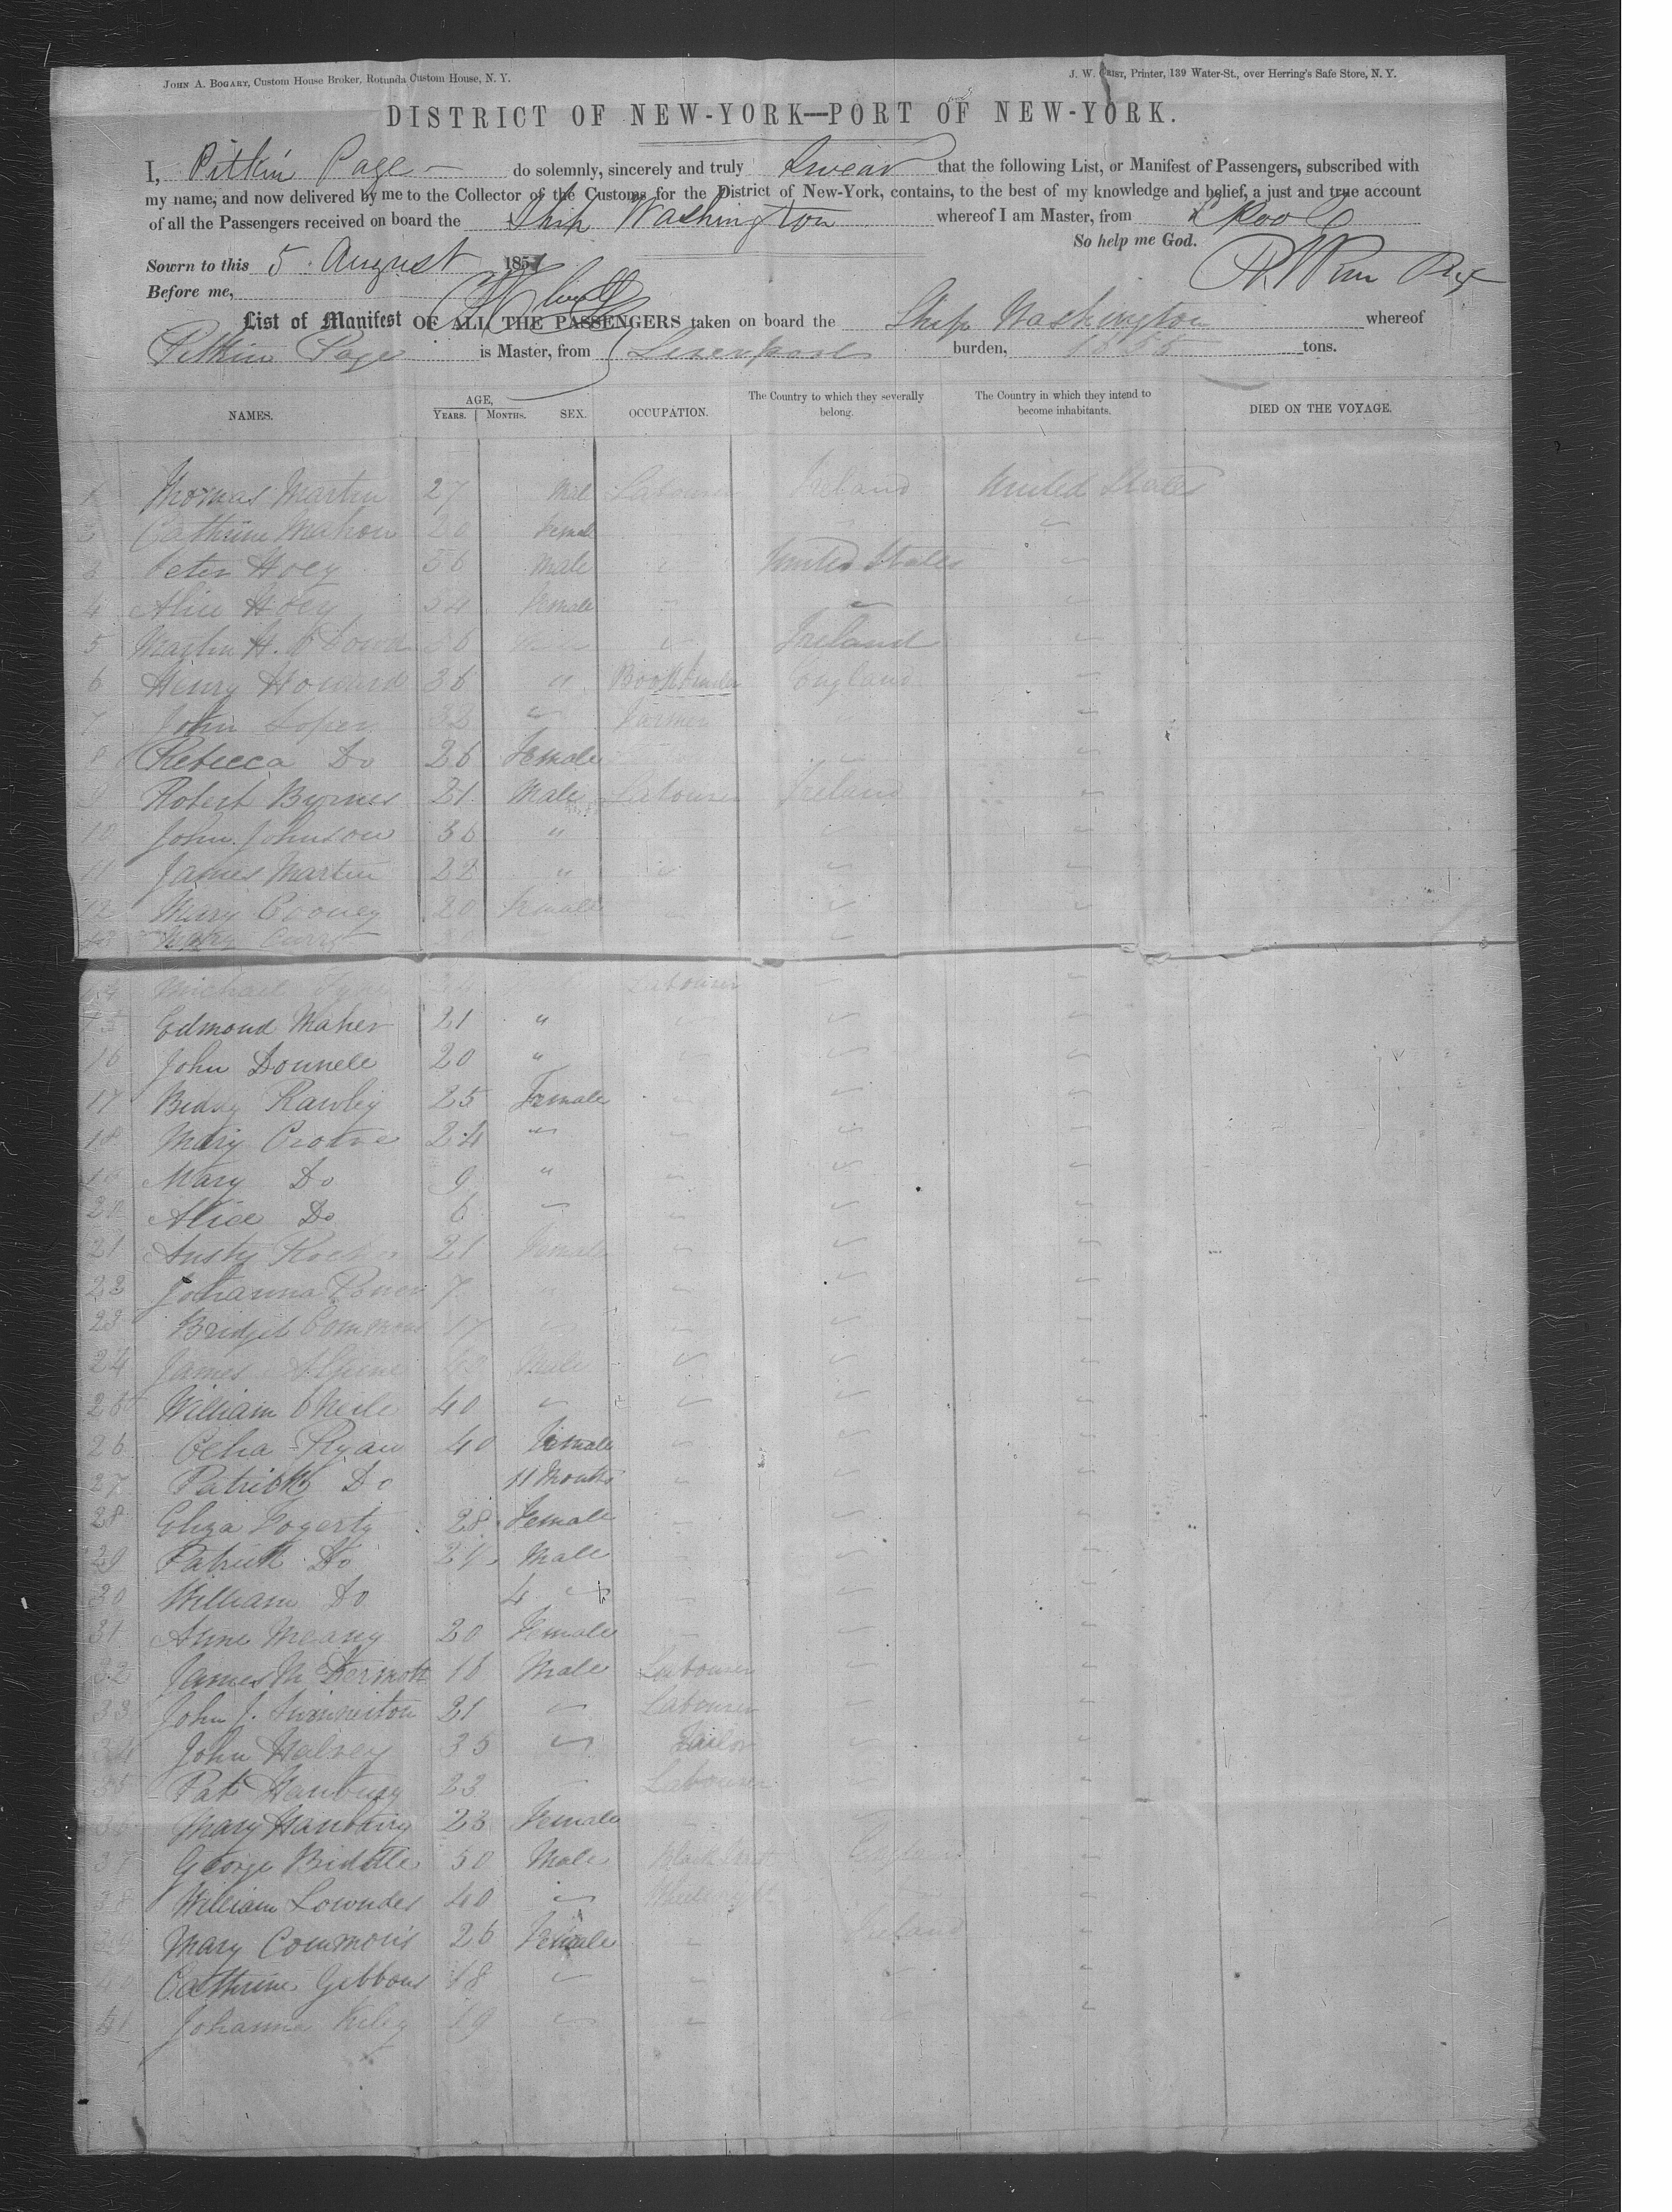 JOHN A. BOGART, Custom House Broker, Rotunda Custom House, N. Y.
J. W. CRIST, Printer, 139 Water-St., over Herring's Safe Store, N. Y.
DISTRICT OF NEW-YORK—PORT OF NEW-YORK.
I, Pitkin Page do solemnly, sincerely and truly Swear that the following List, or Manifest of Passengers, subscribed with
my name, and now delivered by me to the Collector of the Customs for the District of New-York, contains, to the best of my knowledge and belief, a just and true account
of all the Passengers received on board the Ship Washington whereof I am Master, from L'Pool
So help me God.
Sowrn to this 5 August 1851
Before me,
List of Manifest OF ALL THE PASSENGERS taken on board the Ship Washington whereof
Pitkin Page is Master, from Liverpool burden, 1655 tons.
NAMES. AGE, YEARS. MONTHS. SEX. OCCUPATION. The Country to which they severally belong. The Country in which they intend to become inhabitants. DIED ON THE VOYAGE.
1 Thomas Martin 27 Male Labourer Ireland United States
2 Cathrine Mahon 20 Female
3 Peter Hoey 36 Male " United States "
4 Alice Hoey 34 Female " "
5 Martin H. O Dowd 36 " Ireland "
6 Henry Howard 36 " Bookbinder England "
7 John Loper 32 " Farmer " "
8 Rebecca Do 26 Female " "
9 Robert Byrnes 21 Male Labourer Ireland "
10 John Johnson 36 " " "
11 James Martin 22 " " " "
12 Mary Cooney 20 Female " "
13 Curry "
14 Michael Labourer " "
15 Edmond Maher 21 " " " "
16 John Donnell 20 " " " "
17 Biddy Rawley 25 Female " "
18 Mary Crotve 24 " " "
19 Mary Do 9 " " "
20 Alice Do 6 " " "
21 Ansty 21 Female " " "
22 Johanna Power 7 " " "
23 Bridget Commons 17 " " "
24 James Male " " "
25 William ONeile 40 " " " "
26 Celia Ryan 40 Female " "
27 Patrick Do 11 Months " "
28 Eliza Fogerty 28 Female " "
29 Patrick Do 24 Male " "
30 William Do 4 " " "
31 Anne Meany 20 Female " "
32 James Mc Dermott 16 Male Labourer " "
33 John J. Swinnerton 21 " Labourer " "
34 John Halvey 35 " Tailor " "
35 Pat Hanbury 23 " Labourer " "
36 Mary Hanbury 23 Female " "
37 George Biddle 50 Male England "
38 William Lowndes 40 " "
39 Mary Commons 26 Female Ireland "
40 Cathrine Gibbons 18 " " " "
41 Johanna Kiley 19 " " " "